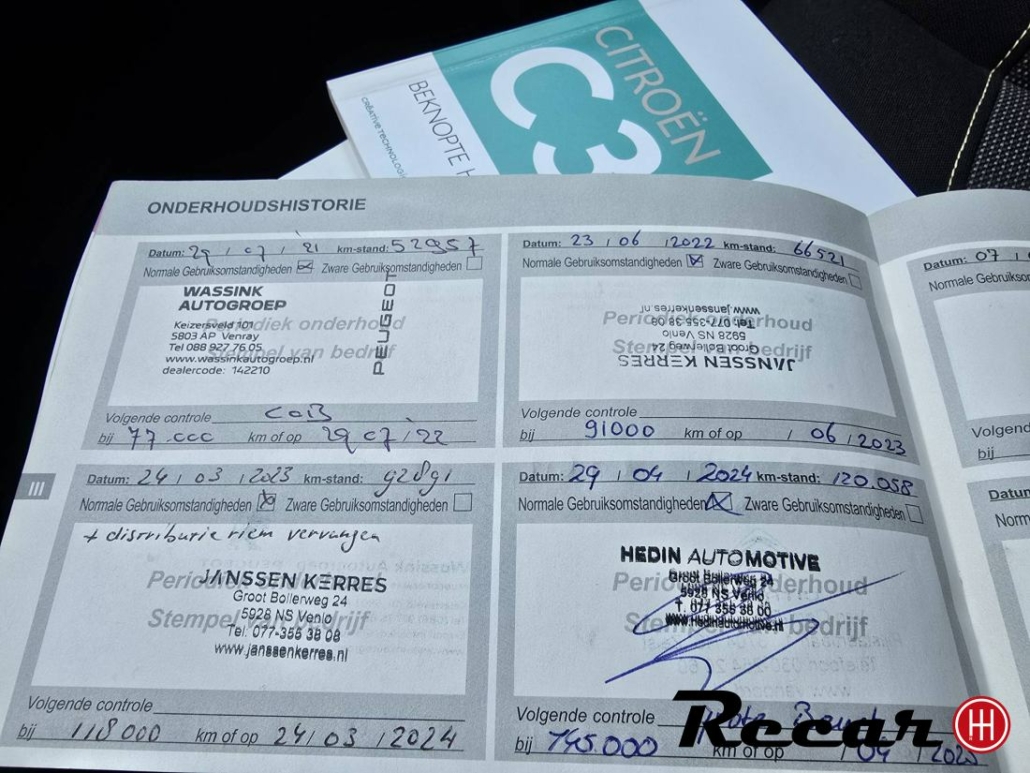 CITROËN
C3
BEKNOPTE H
CRÉATIVE TECHNOLOGIE
ONDERHOUDSHISTORIE
Datum: 29 / 07 / 21 km-stand: 52957
Normale Gebruiksomstandigheden Zware Gebruiksomstandigheden
WASSINK
AUTOGROEP
PEUGEOT
Keizersveld 101
5803 AP Venray
Tel 088 927 76 05
www.wassinkautogroep.nl
dealercode: 142210
Periodiek onderhoud
Stempel van bedrijf
Volgende controle
bij 77.000 km of op 29 07 / 22
Datum: 23 / 06 / 2022 km-stand: 66521
Normale Gebruiksomstandigheden Zware Gebruiksomstandigheden
Periodiek onderhoud
Stempel van bedrijf
JANSSEN KERRES
Groot Bollerweg 24
5928 NS Venlo
Tel. 077-355 38 08
www.janssenkerres.nl
Volgende controle
bij 91000 km of op / 06 / 2023
Datum: 24 / 03 / 2023 km-stand: 92891
Normale Gebruiksomstandigheden Zware Gebruiksomstandigheden
+ distributie riem vervangen
Periodiek onderhoud
Stempel van bedrijf
JANSSEN KERRES
Groot Bollerweg 24
5928 NS Venlo
Tel. 077-355 38 08
www.janssenkerres.nl
Volgende controle
bij 118000 km of op 24 / 03 / 2024
Datum: 29 / 04 / 2024 km-stand: 120.058
Normale Gebruiksomstandigheden Zware Gebruiksomstandigheden
Periodiek onderhoud
Stempel van bedrijf
HEDIN AUTOMOTIVE
Groot Bollerweg 24
5928 NS Venlo
T. 077 355 38 00
www.hedinautomotive.nl
Volgende controle
bij 145.000 km of op / 04 / 2025
III
Datum: 07 /
Normale Gebruiksom
Volgend
bij
Datum
Norm
Reear
H